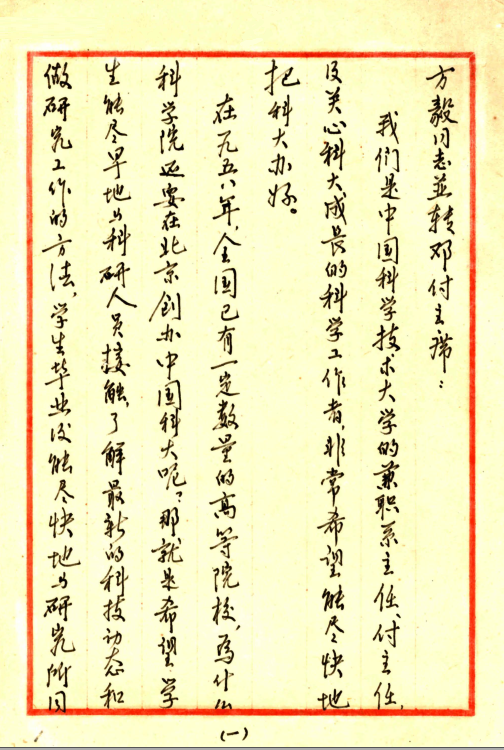 方毅同志並转邓付主席：
我们是中国科学技术大学的兼职系主任、付主任，
及关心科大成长的科学工作者，非常希望能尽快地
把科大办好。
在一九五八年，全国已有一定数量的高等院校，为什么
科学院还要在北京创办中国科大呢？那就是希望学
生能尽早地与科研人员接触，了解最新的科技动态和
做研究工作的方法，学生毕业后能尽快地与研究所同
(一)